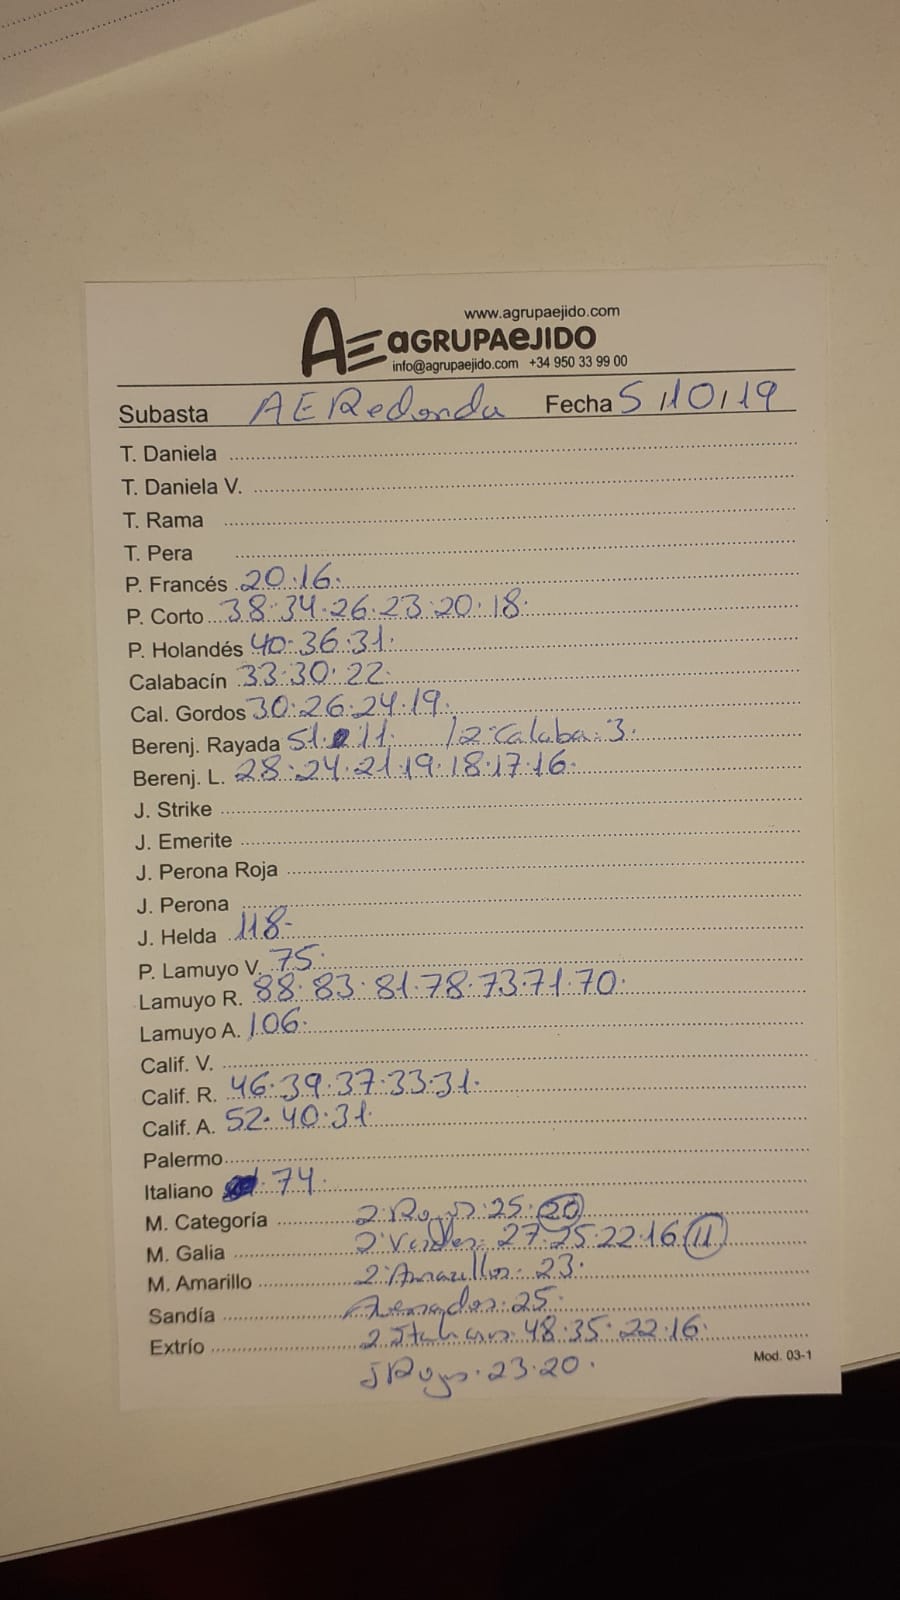 www.agrupaejido.com
AE aGRUPAeJIDO
info@agrupaejido.com +34 950 33 99 00
Subasta AERedonda Fecha 5/10/19
T. Daniela
T. Daniela V.
T. Rama
T. Pera
P. Francés 20.16.
P. Corto 38.34.26.23.20.18.
P. Holandés 40.36.31.
Calabacín 33.30.22.
Cal. Gordos 30.26.24.19.
Berenj. Rayada 51. 11. / 2ª Calaba. 3.
Berenj. L. 28.24.21.19.18.17.16.
J. Strike
J. Emerite
J. Perona Roja
J. Perona
J. Helda 118-
P. Lamuyo V. 75.
Lamuyo R. 88.83.81.78.73.71.70.
Lamuyo A. 106.
Calif. V.
Calif. R. 46.39.37.33.31.
Calif. A. 52.40.31.
Palermo
Italiano 74.
M. Categoría 2ª Rojos. 25. 20
M. Galia 2ª Verdes. 27.25.22.16 11
M. Amarillo 2ª Amarillos. 23.
Sandía 25.
Extrío 2ª 48.35.22.16.
Mod. 03-1
Rojos. 23.20.